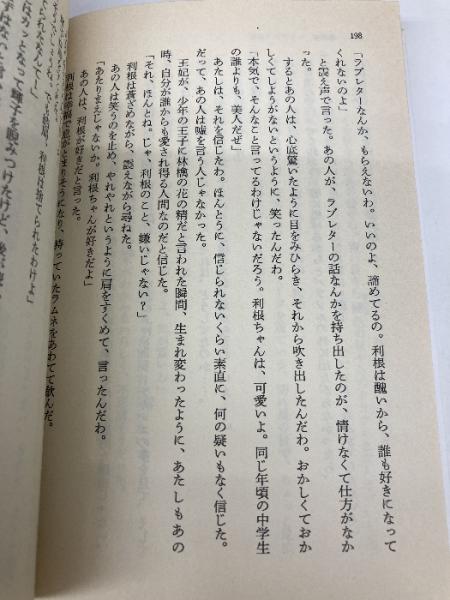 198
「ラブレターなんか、もらえないわ。いいのよ、諦めてるの。利根は醜いから、誰も好きになって
くれないのよ」
と震え声で言った。あの人が、ラブレターの話なんかを持ち出したのが、情けなくて仕方がなか
った。
するとあの人は、心底驚いたように目をみひらき、それから吹き出したんだわ。おかしくておか
しくてしようがないというように、笑ったんだわ。
「本気で、そんなこと言ってるわけじゃないだろう。利根ちゃんは、可愛いよ。同じ年頃の中学生
の誰よりも、美人だぜ」
あたしは、それを信じたわ。ほんとうに、信じられないくらい素直に、何の疑いもなく信じた。
だって、あの人は嘘を言う人じゃなかった。
王妃が、少年の王子に林檎の花の精だと言われた瞬間、生まれ変わったように、あたしもあの
時、自分が誰からも愛され得る人間なのだと信じた。
「それ、ほんとね。じゃ、利根のこと、嫌いじゃない？」
利根は蒼ざめながら、震えながら尋ねた。
あの人は笑うのを止め、やれやれというように肩をすくめて、言ったんだわ。
「あたりまえじゃないか。利根ちゃんが好きだよ」
あの人は、利根が好きだと言った。
利根は幸福で息が止まりそうになり、持っていたラムネをあわてて飲んだ。
利根は捨てられたわけよ」
たわなんて！」
はカッとなって輝子を睨みつけたけど、